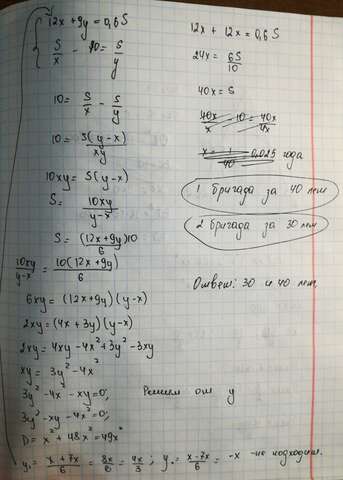 12x + 9y = 0,6 S
S/x - 10 = S/y
10 = S/x - S/y
10 = S(y-x)/xy
10xy = S(y-x)
S = 10xy/y-x
S = (12x+9y)10/6
10xy/y-x = 10(12x+9y)/6
6xy = (12x+9y)(y-x)
2xy = (4x+3y)(y-x)
2xy = 4xy - 4x² + 3y² - 3xy
xy = 3y² - 4x²
3y² - 4x² - xy = 0; Решаем от y
3y² - xy - 4x² = 0;
D = x² + 48x² = 49x²
y₁ = x + 7x/6 = 8x/6 = 4x/3 ; y₂ = x - 7x/6 = -x - не подходит.
12x + 12x = 0,6 S
24x = 6S/10
40x = S
40x/x - 10 = 40x/4x
x = 1/40 = 0,025 года
1 бригада за 40 лет
2 бригада за 30 лет
Ответ: 30 и 40 лет.